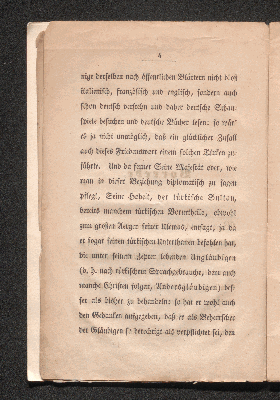 4
nige derselben nach öffentlichen Blättern nicht blos
italienisch, französisch und englisch, sondern auch
schon deutsch verstehn und daher deutsche Schau-
spiele besuchen und deutsche Bücher lesen: so wär'
es ja nicht unmöglich, daß ein glücklicher Zufall
auch dieses Friedenswort einem solchen Türken zu-
führte. Und da ferner Seine Majestät oder, wie
man in dieser Beziehung diplomatisch zu sagen
pflegt, Seine Hoheit, der türkische Sultan,
bereits manchem türkischen Vorurtheile, obwohl
zum großen Aerger seiner Ulemas, entsagt, ja da
er sogar seinen türkischen Unterthanen befohlen hat,
die unter seinem Zepter lebenden Ungläubigen
(d. h. nach türkischem Sprachgebrauche, dem auch
manche Christen folgen, Andersgläubigen) bes-
ser als bisher zu behandeln: so hat er wohl auch
den Gedanken aufgegeben, daß er als Beherrscher
der Gläubigen so berechtigt als verpflichtet sei, den